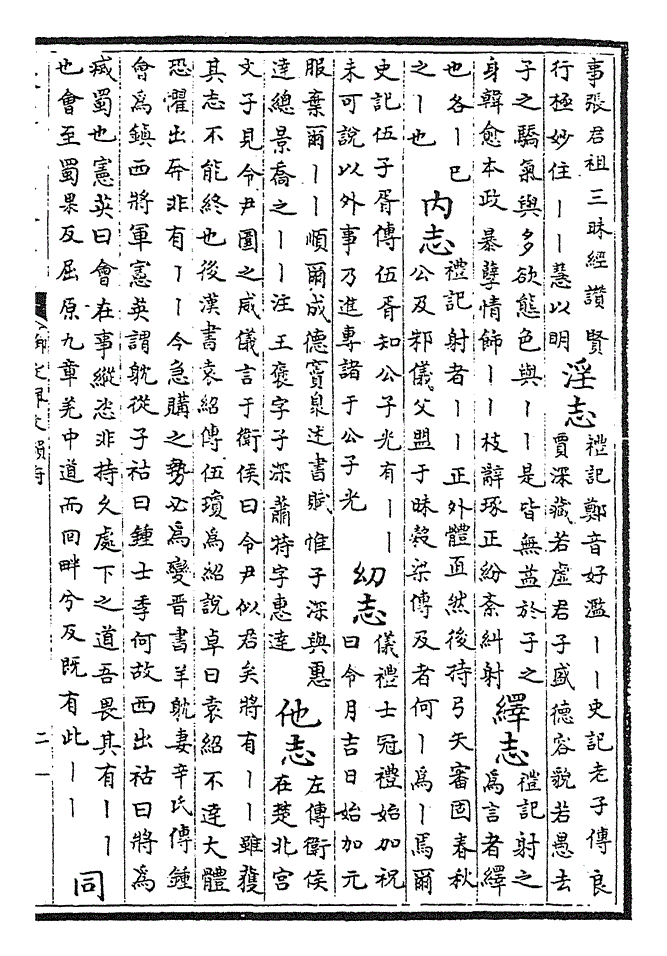 事張君祖三昧經讚賢
行極妙住丨丨慧以明
淫志
禮記鄭音好濫丨丨史記老子傳良
賈深藏若虛君子盛德容貌若愚去
子之驕氣與多欲態色與丨丨是皆無益於子之
身韓愈本政暴孽情飾丨丨枝辭琢正紛紊糾射
繹志
禮記射之
爲言者繹
也各丨巳
之丨也
内志
禮記射者丨丨正外體直然後持弓矢審固春秋
公及邾儀父盟于昧穀梁傳及者何丨爲丨焉爾
史記伍子胥傳伍胥知公子光有丨丨
未可說以外事乃進專諸于公子光
幼志
儀禮士冠禮始加祝
曰令月吉日始加元
服棄爾丨丨順爾成德竇臮述書賦惟子深與惠
達總景喬之丨丨注王褒字子深蕭特字惠達
他志
左傳衛侯
在楚北宮
文子見令尹圍之威儀言于衛侯曰令尹似君矣將有丨丨雖獲
其志不能終也後漢書袁紹傳伍瓊爲紹說卓曰袁紹不達大體
恐懼出奔非有丨丨今急購之勢必爲變晉書羊耽妻辛氏傳鍾
會爲鎮西將軍憲英謂耽從子祜曰鍾士季何故西出祜曰將爲
滅蜀也憲英曰會在事縱恣非持久處下之道吾畏其有丨丨
也會至蜀果反屈原九章羌中道而回畔兮反既有此丨丨
同
二一